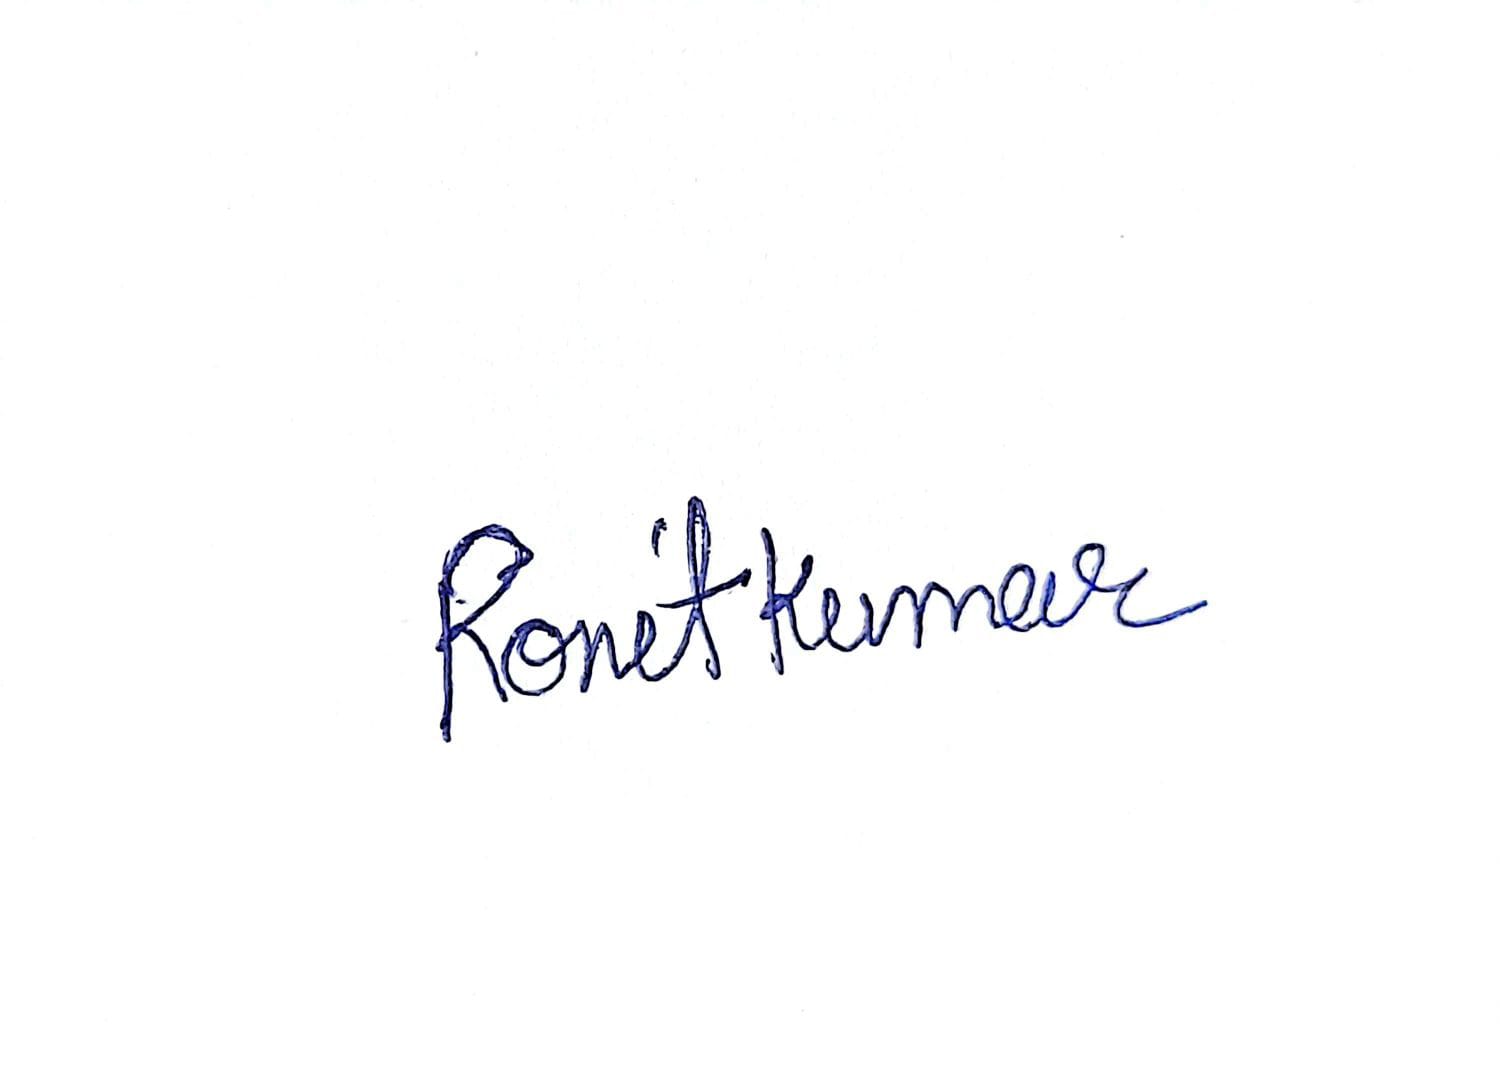 Ronit Kumar